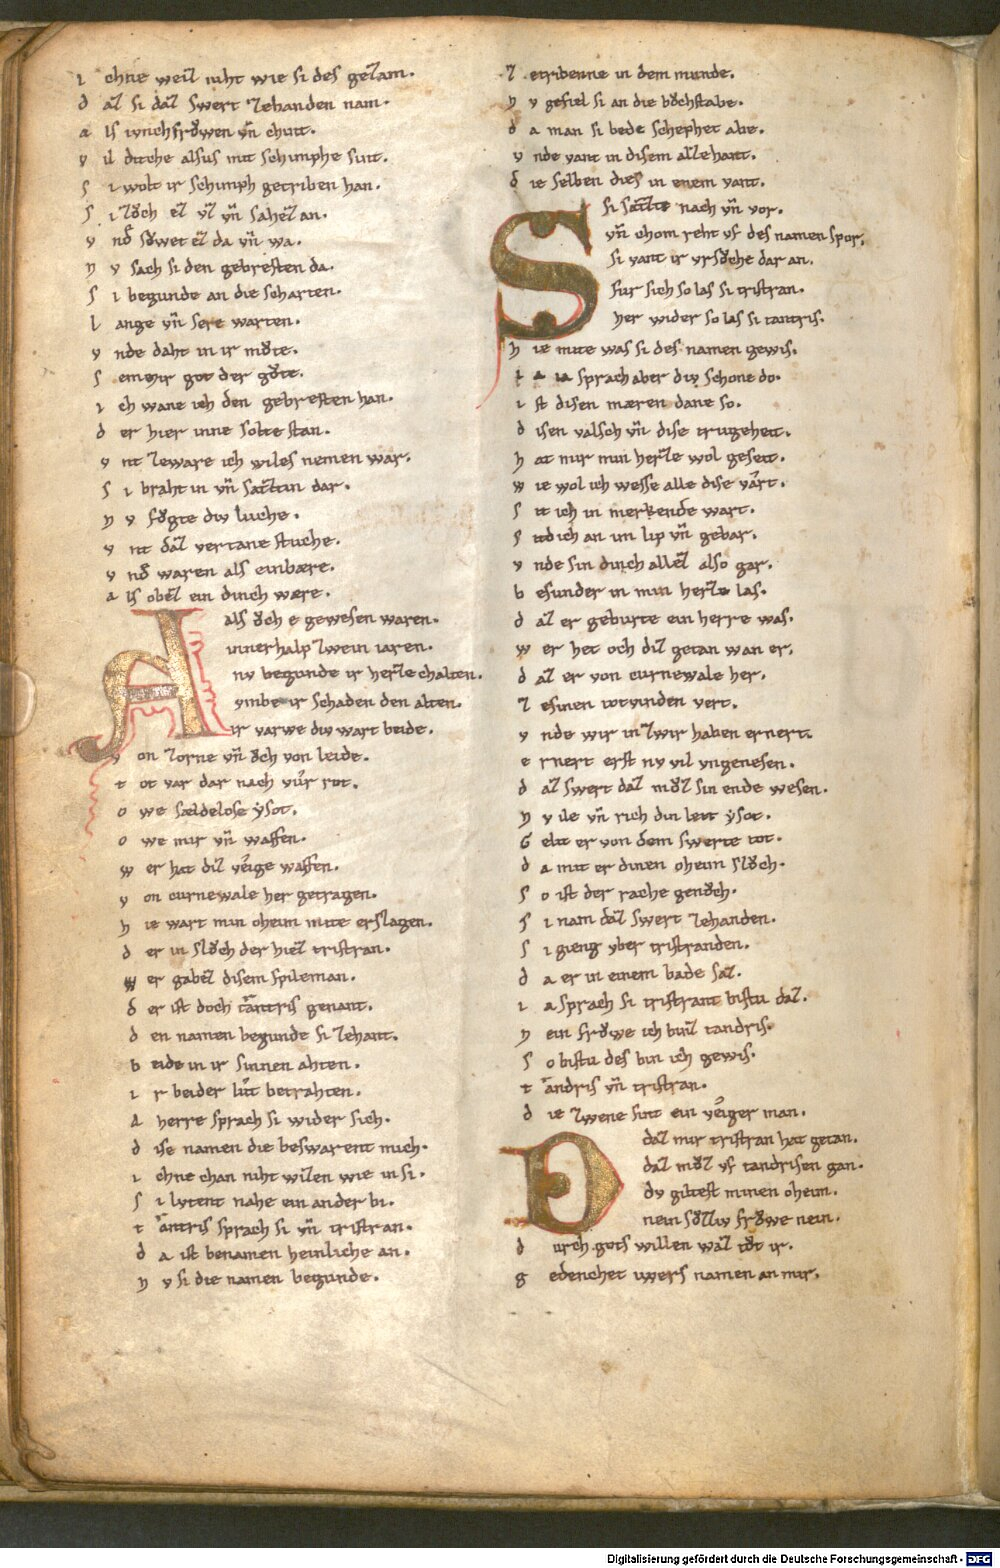 i chne weiz niht wie si des gezam.
d az si daz swert zehanden nam.
a ls iunchfrŏwen vn̄ chint.
v il dicche alsus mit schimphe sint.
s i wolt ir schimph getriben han.
s i zŏch ez vz vn̄ sahez an.
v nd̄ schŏwet ez da vn̄ wa.
n v sach si den gebresten da.
s i begunde an die scharten.
l ange vn̄ sere warten.
v nde daht in ir mŏte.
s emmir got der gŏte.
i ch wane ich den gebresten han.
d er hier inne solte stan.
v nt zeware ich wiles nemen war.
s i braht in vn̄ satztin dar.
n v fŏgte div luche.
v nt daz vertane stuche.
v nd̄ waren als einbære.
a ls obez ein dinch wære.
A als ŏch e gewesen waren.
innerhalp zwein iaren.
nv begunde ir herze chalten.
vmbe ir schaden den alten.
ir varwe div wart beide.
v on zorne vn̄ ŏch von leide.
t ot var dar nach viur rot.
o we sældelose ysot.
o we mir vn̄ waffen.
w er hat diz veige waffen.
v on curnewale her getragen.
h ie wart min oheim mite erslagen.
d er in slŏch der hiez tristran.
w er gabez disem spileman.
d er ist doch tantris genant.
d en namen begunde si zehant.
b eide in ir sinnen ahten.
i r beider lut betrahten.
a herre sprach si wider sich.
d ise namen die beswarent mich.
i chne chan niht wizen wie in si.
s i lvtent nahe ein ander bi.
t antris sprach si vn̄ tristran.
d a ist benamen heinliche an.
n v si die namen begunde.
z etribenne in dem munde.
n v gefiel si an die bŏchstabe.
d a man si bede schephet abe.
v nde vant in disem alzehant.
d ie selben dies in enem vant.
S si satzte nach vn̄ vor.
vn̄ chom reht vf des namen spor.
si vant ir vrsŏche dar an.
fur sich so las si tristran.
her wider so las si tantris.
h ie mite was si des namen gewis.
i a ia sprach aber div schone do.
i st disen mæren dane so.
d isen valsch vn̄ dise trugeheit.
h at mir min herze wol geseit.
w ie wol ich wesse alle dise vart.
s it ich in merkende wart.
s itdich an im lip vn̄ gebar.
v nde sin dinch allez also gar.
b esunder in min herze las.
d az er geburte ein herre was.
w er het och diz getan wan er.
d az er von curnewale her.
z esinen totvinden vert.
v nde wir in zwir haben ernert.
e rnert erst nv vil vngenesen.
d az swert daz mŏz sin ende wesen.
n v ile vn̄ rich din leit ysot.
G elit er von dem swerte tot.
d a mit er dinen oheim slŏch.
s o ist der rache genŏch.
s i nam daz swert zehanden.
s i gieng vber tristranden.
d a er in einem bade saz.
i a sprach si tristrant bistu daz.
n ein frŏwe ich binz tandris.
s o bistu des bin ich gewis.
t andris vn̄ tristran.
d ie zwene sint ein veiger man.
D daz mir tristran hat getan.
daz mŏz vf tandrisen gan.
dv giltest minen oheim.
nein sŏzziv frŏwe nein.
d urch gots willen waz tŏt ir.
g edenchet iwers namen an mir.
Digitalisierung gefördert durch die Deutsche Forschungsgemeinschaft - DFG